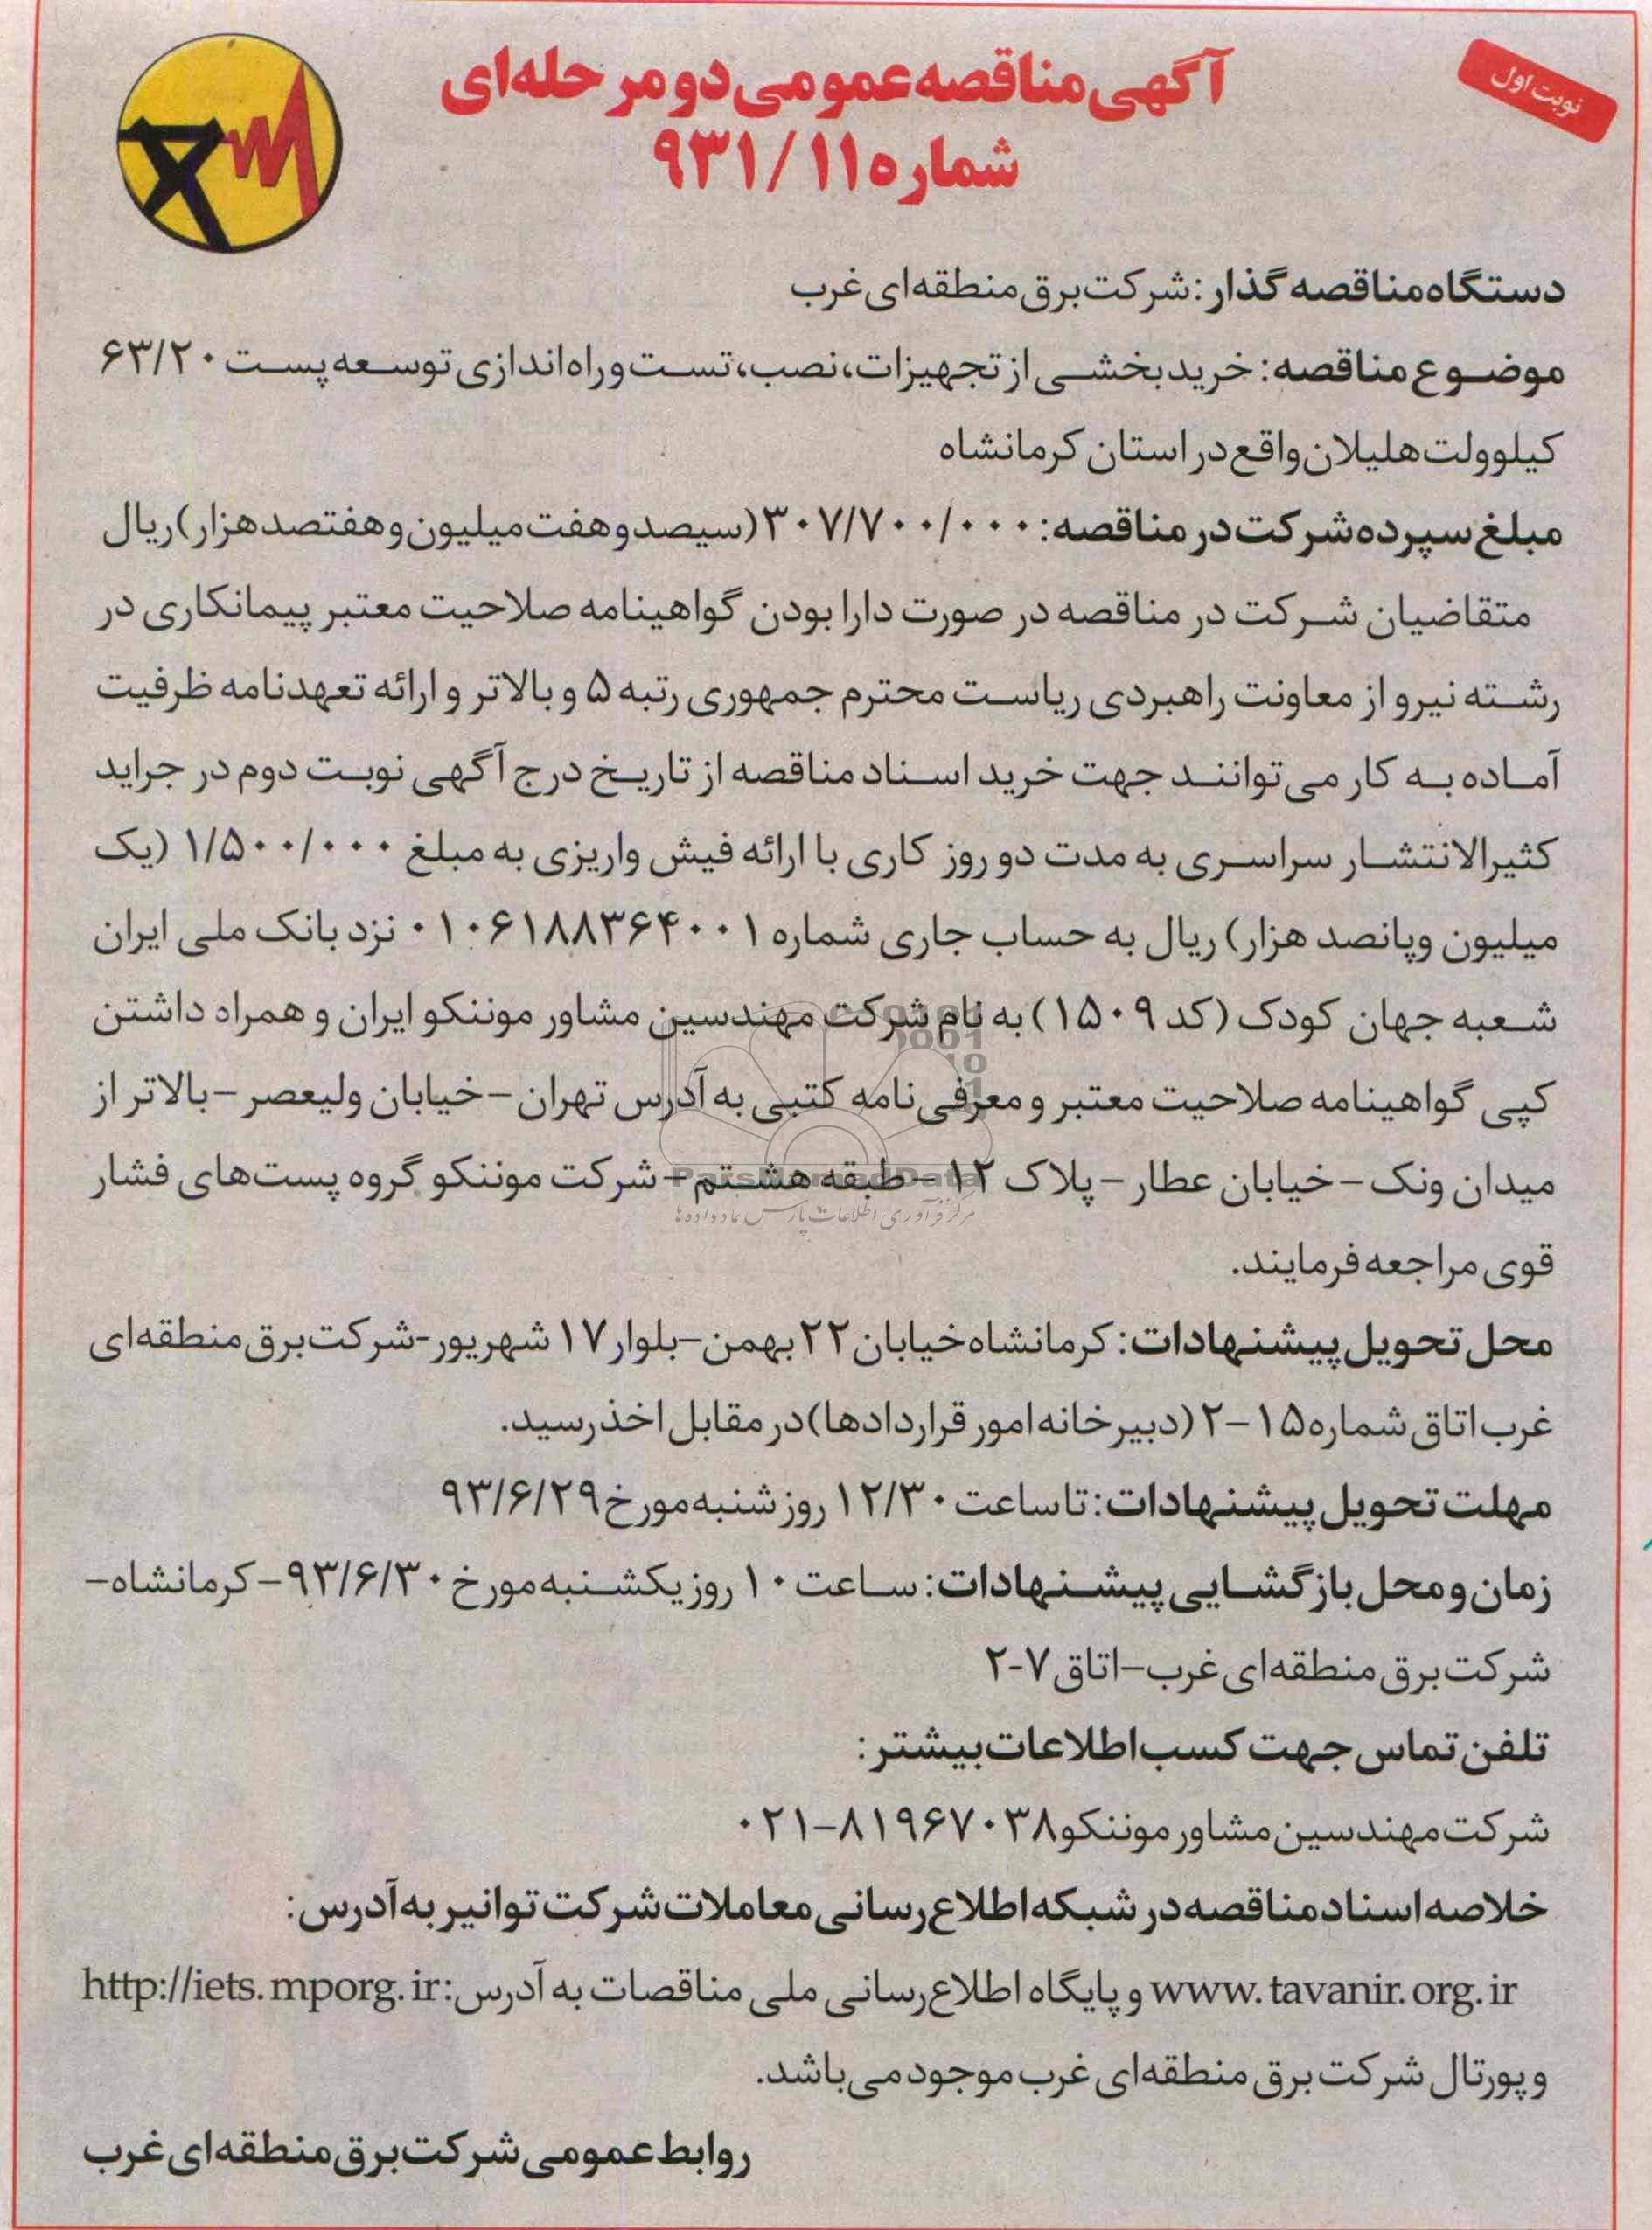 نوبت اول
آگهی مناقصه عمومی دو مرحله‌ای
شماره ۹۳۱/۱۱
دستگاه مناقصه گذار: شرکت برق منطقه‌ای غرب
موضوع مناقصه: خرید بخشی از تجهیزات، نصب، تست و راه‌اندازی توسعه پست ۶۳/۲۰
کیلوولت هلیلان واقع در استان کرمانشاه
مبلغ سپرده شرکت در مناقصه: ۳۰۷/۷۰۰/۰۰۰ (سیصد و هفت میلیون و هفتصد هزار) ریال
متقاضیان شرکت در مناقصه در صورت دارا بودن گواهینامه صلاحیت معتبر پیمانکاری در
رشته نیرو از معاونت راهبردی ریاست محترم جمهوری رتبه ۵ و بالاتر و ارائه تعهدنامه ظرفیت
آماده به کار می‌توانند جهت خرید اسناد مناقصه از تاریخ درج آگهی نوبت دوم در جراید
کثیرالانتشار سراسری به مدت دو روز کاری با ارائه فیش واریزی به مبلغ ۱/۵۰۰/۰۰۰ (یک
میلیون وپانصد هزار) ریال به حساب جاری شماره ۰۱۰۶۱۸۸۳۶۴۰۰۱ نزد بانک ملی ایران
شعبه جهان کودک (کد ۱۵۰۹) به نام شرکت مهندسین مشاور موننکو ایران و همراه داشتن
کپی گواهینامه صلاحیت معتبر و معرفی‌نامه کتبی به آدرس تهران – خیابان ولیعصر – بالاتر از
میدان ونک – خیابان عطار – پلاک ۱۲ – طبقه هشتم – شرکت موننکو گروه پست‌های فشار
ParsNamadData
مرکز فرآوری اطلاعات پارس نماد داده‌ها
قوی مراجعه فرمایند.
محل تحویل پیشنهادات: کرمانشاه خیابان ۲۲ بهمن–بلوار ۱۷ شهریور-شرکت برق منطقه‌ای
غرب اتاق شماره ۱۵–۲ (دبیرخانه امور قراردادها) در مقابل اخذ رسید.
مهلت تحویل پیشنهادات: تا ساعت ۱۲/۳۰ روز شنبه مورخ ۹۳/۶/۲۹
زمان و محل بازگشایی پیشنهادات: ساعت ۱۰ روز یکشنبه مورخ ۹۳/۶/۳۰ – کرمانشاه–
شرکت برق منطقه‌ای غرب–اتاق ۷-۲
تلفن تماس جهت کسب اطلاعات بیشتر:
شرکت مهندسین مشاور موننکو ۸۱۹۶۷۰۳۸–۰۲۱
خلاصه اسناد مناقصه در شبکه اطلاع رسانی معاملات شرکت توانیر به آدرس:
www. tavanir. org. ir و پایگاه اطلاع‌رسانی ملی مناقصات به آدرس: http://iets. mporg. ir
و پورتال شرکت برق منطقه‌ای غرب موجود می‌باشد.
روابط عمومی شرکت برق منطقه‌ای غرب